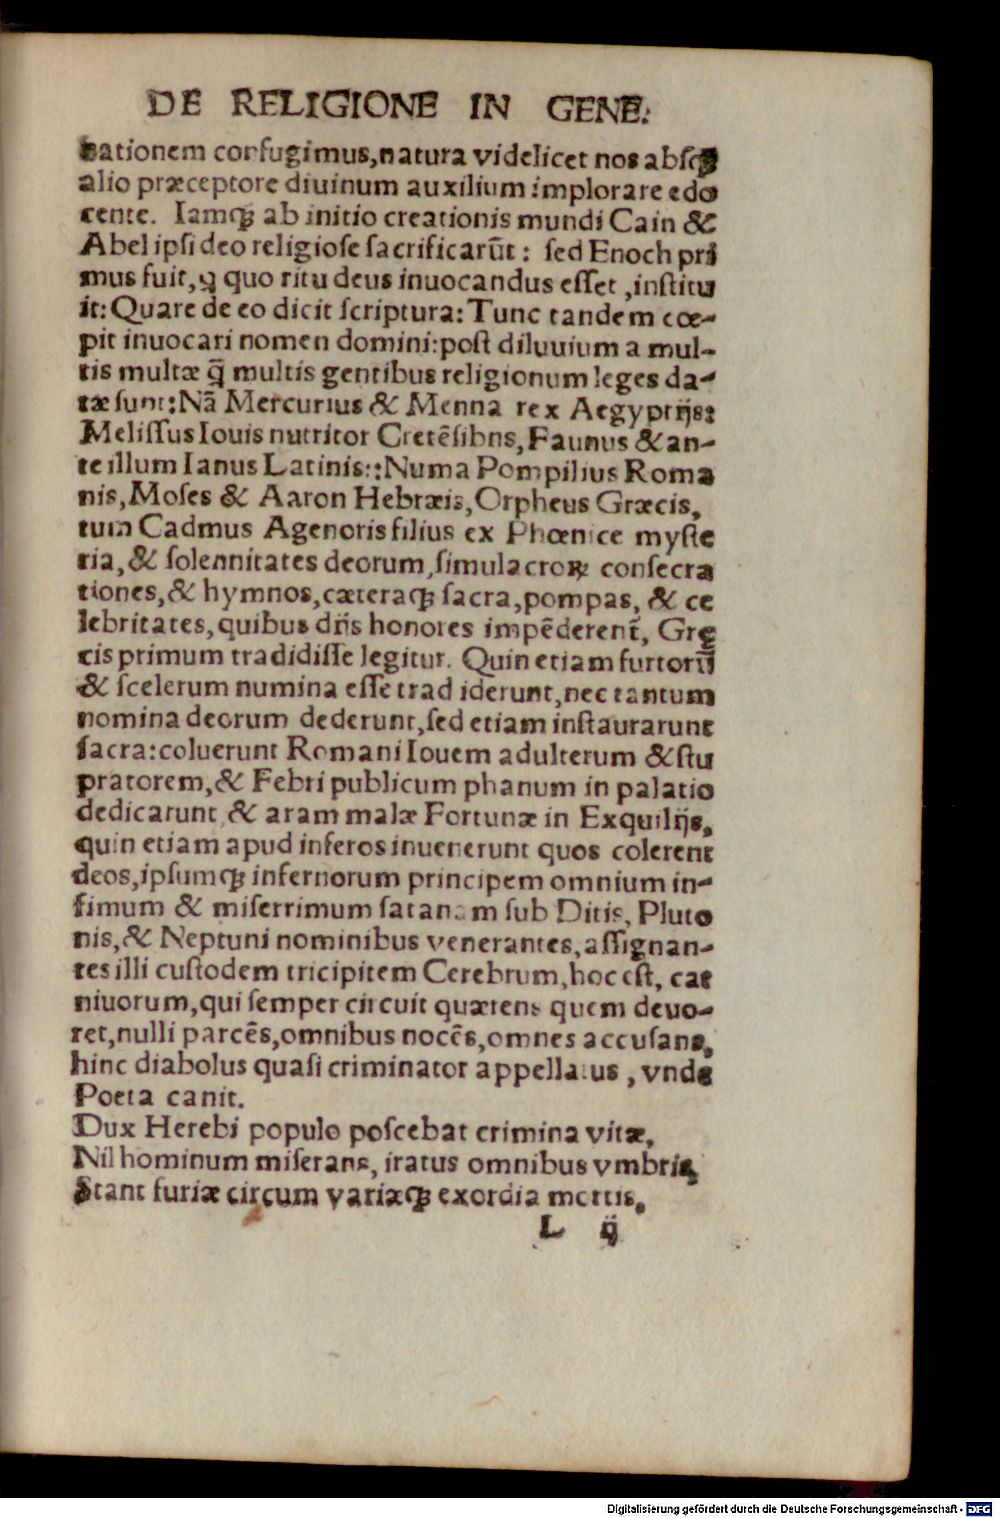 DE RELIGIONE IN GENE.
bationem confugimus,natura videlicet nos absqꝫ
alio præceptore diuinum auxilium implorare edo
cente. Iamqꝫ ab initio creationis mundi Cain &
Abel ipsi deo religiose sacrificarūt : sed Enoch pri
mus fuit, ꝙ quo ritu deus inuocandus esset ,institu
it: Quare de eo dicit scriptura: Tunc tandem cœ-
pit inuocari nomen domini: post diluuium a mul-
tis multæ q̃ multis gentibus religionum leges da-
tæ sunt: Nā Mercurius & Menna rex Aegyptijs:
Melissus Iouis nutritor Cretēsibns, Faunus & an-
te illum Ianus Latinis:: Numa Pompilius Roma
nis, Moses & Aaron Hebræis, Orpheus Græcis,
tum Cadmus Agenoris filius ex Phœnice myste
ria, & solennitates deorum,simulacroꝝ consecra
tiones, & hymnos, cæteraqꝫ sacra,pompas, & ce
lebritates, quibus diis honores impēderent̃, Grę
cis primum tradidisse legitur. Quin etiam furtorū
& scelerum numina esse trad iderunt, nec tantum
nomina deorum dederunt, sed etiam instaurarunt
sacra: coluerunt Romani Iouem adulterum & stu
pratorem, & Febri publicum phanum in palatio
dedicarunt, & aram malæ Fortunæ in Exquilijs,
quin etiam apud inferos inuenerunt quos colerent
deos, ipsumqꝫ infernorum principem omnium in-
fimum & miserrimum satanam sub Ditis, Pluto
nis, & Neptuni nominibus venerantes, assignan-
tes illi custodem tricipitem Cerebrum, hoc est, car
niuorum, qui semper circuit quærens quem deuo-
ret, nulli parcēs, omnibus nocēs, omnes accusans,
hinc diabolus quasi criminator appellatus , vnde
Poeta canit.
Dux Herebi populo poscebat crimina vitæ,
Nil hominum miserans, iratus omnibus vmbris,
Stant furiæ circum variæqꝫ exordia mortis,
L ij
Digitalisierung gefördert durch die Deutsche Forschungsgemeinschaft - DFG